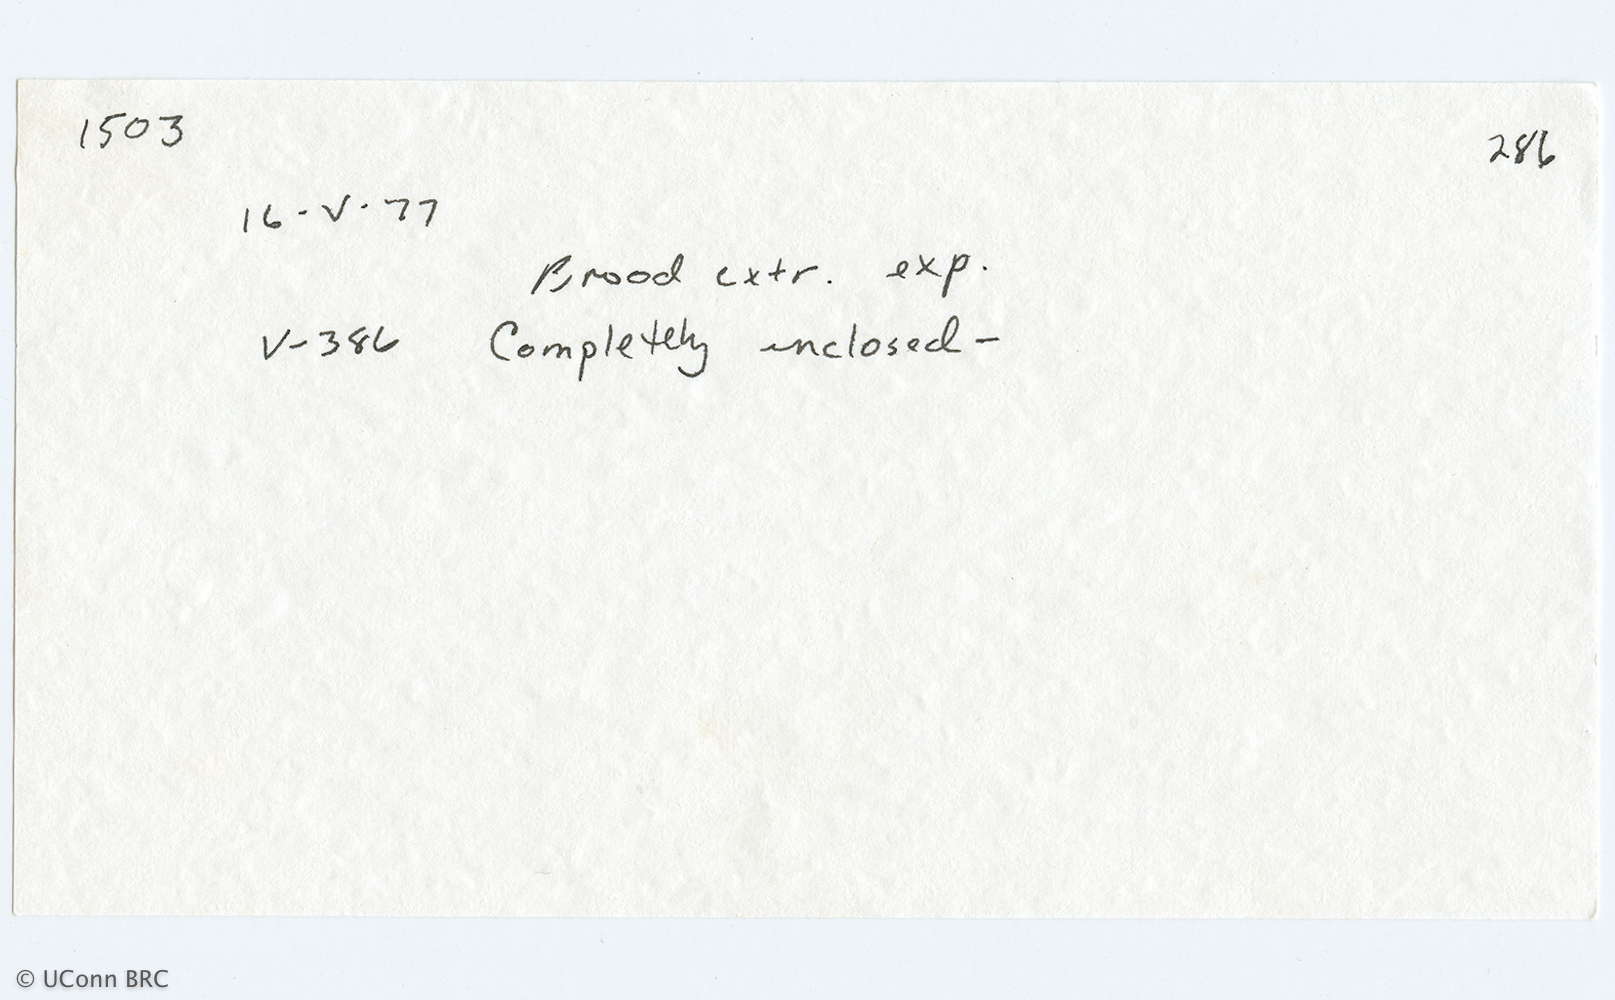 1503
286
16-V-77
Brood extr. exp.
V-386 Completely enclosed-
© UConn BRC